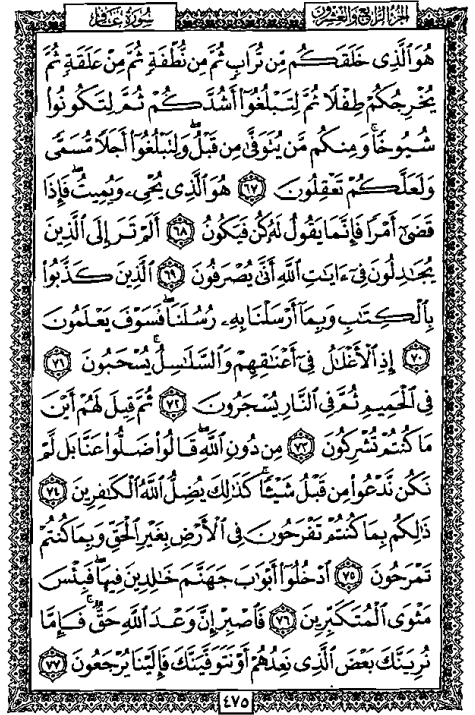 سُورَةُ غَافِرٍ الجُزْءُ الرَّابِعُ وَالعِشْرُونَ
هُوَ ٱلَّذِى خَلَقَكُم مِّن تُرَابٍ ثُمَّ مِن نُّطْفَةٍ ثُمَّ مِنْ عَلَقَةٍ ثُمَّ
يُخْرِجُكُمْ طِفْلًا ثُمَّ لِتَبْلُغُوٓا۟ أَشُدَّكُمْ ثُمَّ لِتَكُونُوا۟
شُيُوخًا ۚ وَمِنكُم مَّن يُتَوَفَّىٰ مِن قَبْلُ ۖ وَلِتَبْلُغُوٓا۟ أَجَلًا مُّسَمًّى
وَلَعَلَّكُمْ تَعْقِلُونَ ٦٧ هُوَ ٱلَّذِى يُحْىِۦ وَيُمِيتُ ۖ فَإِذَا
قَضَىٰٓ أَمْرًا فَإِنَّمَا يَقُولُ لَهُۥ كُن فَيَكُونُ ٦٨ أَلَمْ تَرَ إِلَى ٱلَّذِينَ
يُجَـٰدِلُونَ فِىٓ ءَايَـٰتِ ٱللَّهِ أَنَّىٰ يُصْرَفُونَ ٦٩ ٱلَّذِينَ كَذَّبُوا۟
بِٱلْكِتَـٰبِ وَبِمَآ أَرْسَلْنَا بِهِۦ رُسُلَنَا ۖ فَسَوْفَ يَعْلَمُونَ
٧٠ إِذِ ٱلْأَغْلَـٰلُ فِىٓ أَعْنَـٰقِهِمْ وَٱلسَّلَـٰسِلُ يُسْحَبُونَ ٧١
فِى ٱلْحَمِيمِ ثُمَّ فِى ٱلنَّارِ يُسْجَرُونَ ٧٢ ثُمَّ قِيلَ لَهُمْ أَيْنَ
مَا كُنتُمْ تُشْرِكُونَ ٧٣ مِن دُونِ ٱللَّهِ ۖ قَالُوا۟ ضَلُّوا۟ عَنَّا بَل لَّمْ
نَكُن نَّدْعُوا۟ مِن قَبْلُ شَيْـًٔا ۚ كَذَٰلِكَ يُضِلُّ ٱللَّهُ ٱلْكَـٰفِرِينَ ٧٤
ذَٰلِكُم بِمَا كُنتُمْ تَفْرَحُونَ فِى ٱلْأَرْضِ بِغَيْرِ ٱلْحَقِّ وَبِمَا كُنتُمْ
تَمْرَحُونَ ٧٥ ٱدْخُلُوٓا۟ أَبْوَٰبَ جَهَنَّمَ خَـٰلِدِينَ فِيهَا ۖ فَبِئْسَ
مَثْوَى ٱلْمُتَكَبِّرِينَ ٧٦ فَٱصْبِرْ إِنَّ وَعْدَ ٱللَّهِ حَقٌّ ۚ فَإِمَّا
نُرِيَنَّكَ بَعْضَ ٱلَّذِى نَعِدُهُمْ أَوْ نَتَوَفَّيَنَّكَ فَإِلَيْنَا يُرْجَعُونَ ٧٧
٤٧٥